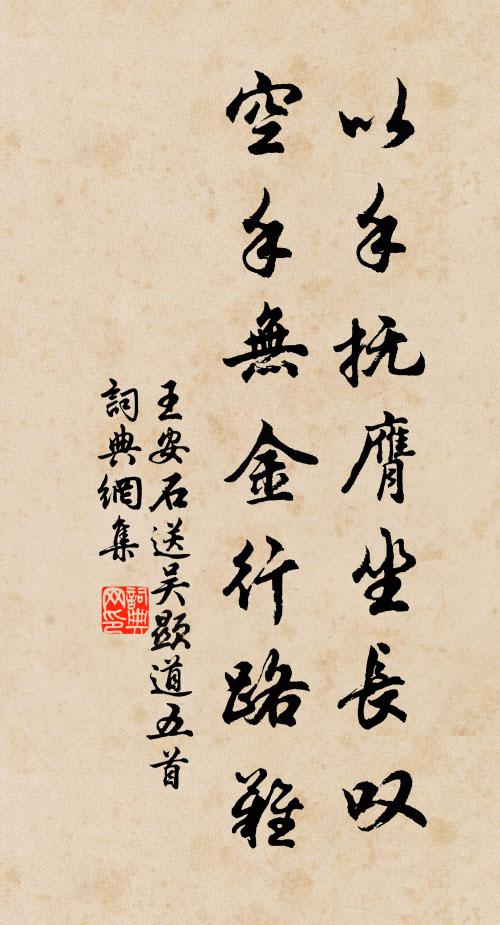 以手抚膺坐長叹
空手無金行路難
王安石送吴顯道五首
詞典網集
詞典网印